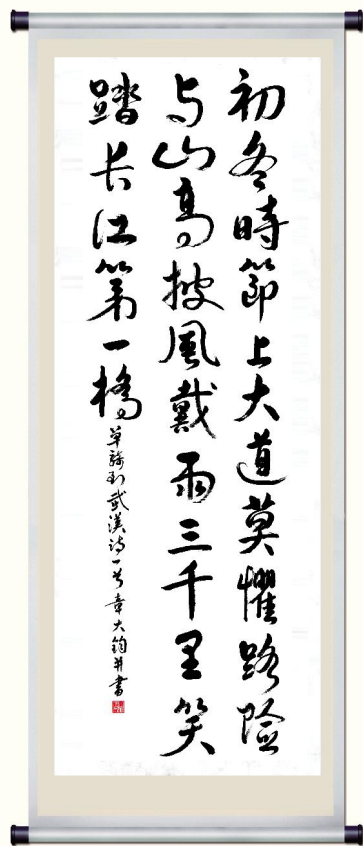 初冬時節上大道莫懼路險
与山高披風戴雨三千里笑
踏长江第一橋
武漢诗一首章大鈞并書